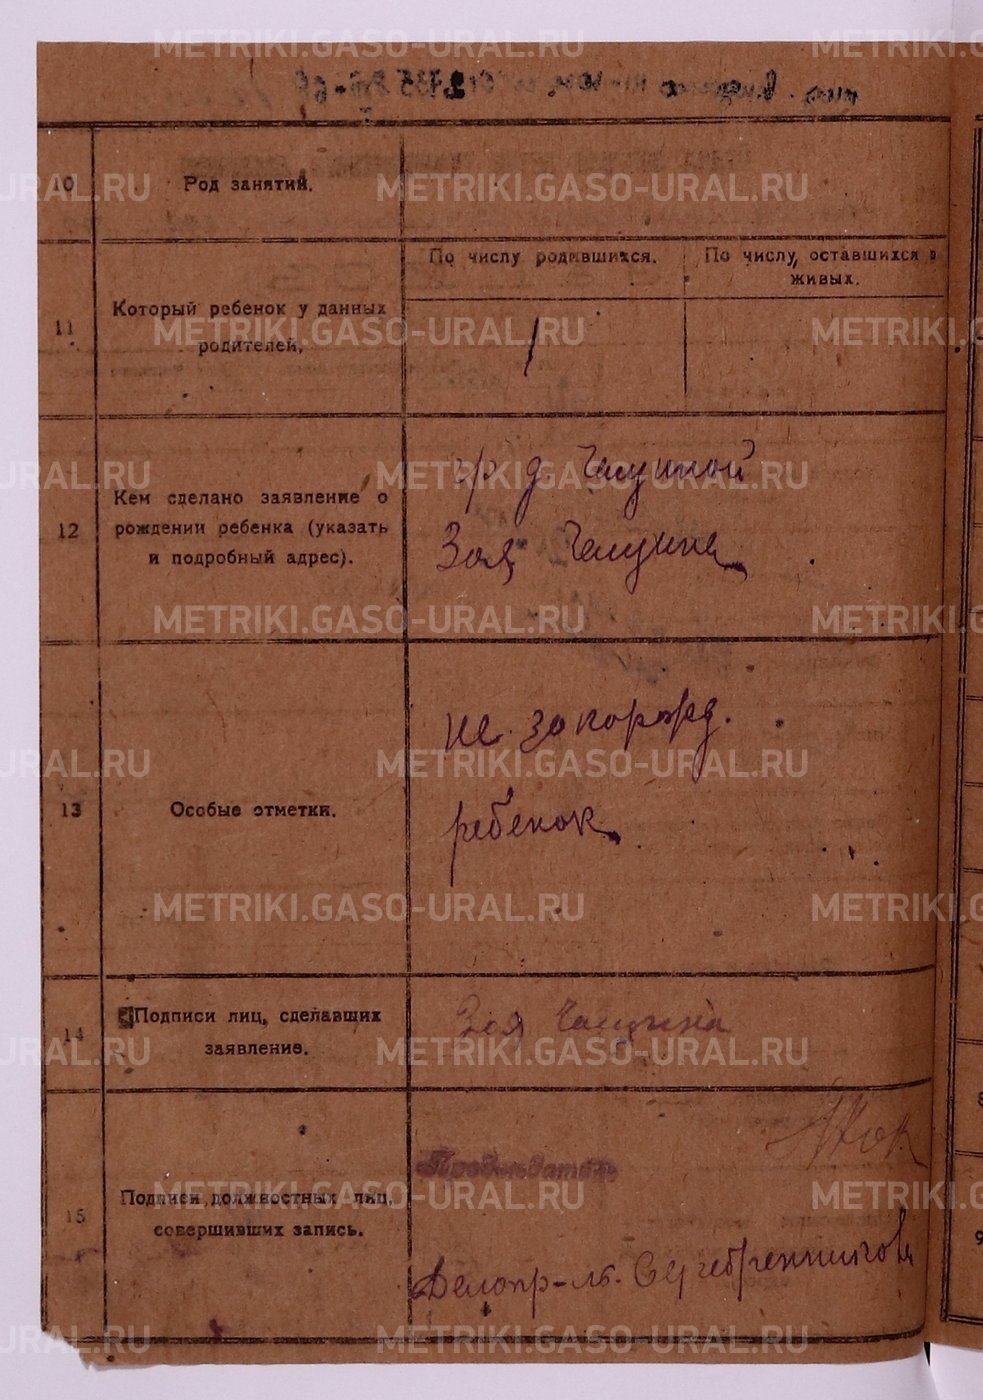 10
Род занятий.
11
Который ребенок у данных
родителей.
По числу родившихся.
По числу, оставшихся в
живых.
1
12
Кем сделано заявление о
рождении ребенка (указать
и подробный адрес).
гр
Зоя
13
Особые отметки.
не
ребенок
14
Подписи лиц, сделавших
заявление.
Зоя Чащина
15
Подписи должностных лиц,
совершивших запись.
Председатель
Делопр-ль.
METRIKI.GASO-URAL.RU